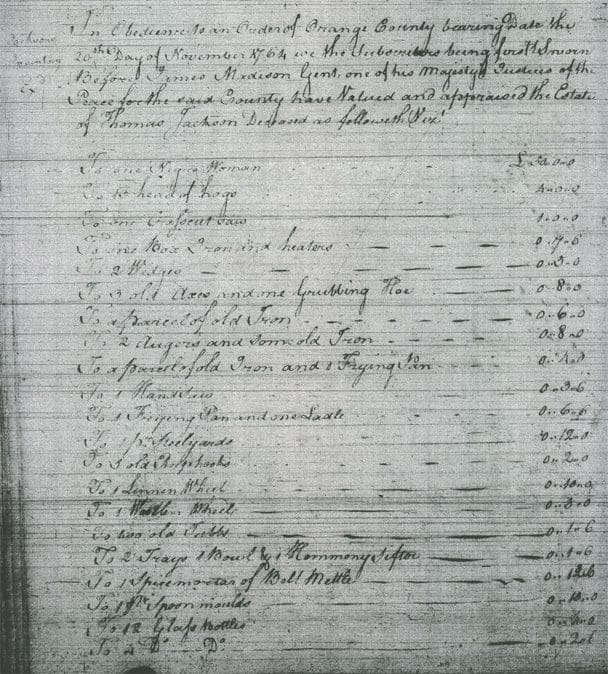 In Obedience to an Order of Orange County bearing Date the
Jacksons
Inventory
20th Day of November 1764 we the Subscribers being first Sworn
Before James Madison Gent. one of his Majestys Justices of the
Peace for the said County have Valued and appraised the Estate
of Thomas Jackson Deceased as followeth Vizt
To one Negro Woman £ 30..0..0
To head of hogs 4..0..0
To one Crosscut Saw 1..0..0
To one Box Iron and heaters 0..7..6
To 2 Wedges 0..5..0
To 3 old Axes and one Grubbing Hoe 0..8..0
To a parcel of old Iron 0..6..0
To 2 Augers and some old Iron 0..8..0
To a parcel of old Iron and 1 Frying Pan
To 1 Handsaw 0..3..6
To 1 Frying Pan and one Ladle 0..6..6
To 1 pr. Steelyards 0..12..0
To 3 old Reephooks 0..2..0
To 1 Linnen Wheel 0..10..0
To 1 Woollen Wheel
To old Tubbs 0..1..6
To 2 Trays 1 Bowl & 1 Hommony Sifter 0..1..6
To 1 Spice mortar of Bell Mettle 0..12..6
To 1 Spoon moulds 0..10..0
To 12 Glass Bottles
To 4 Do Do